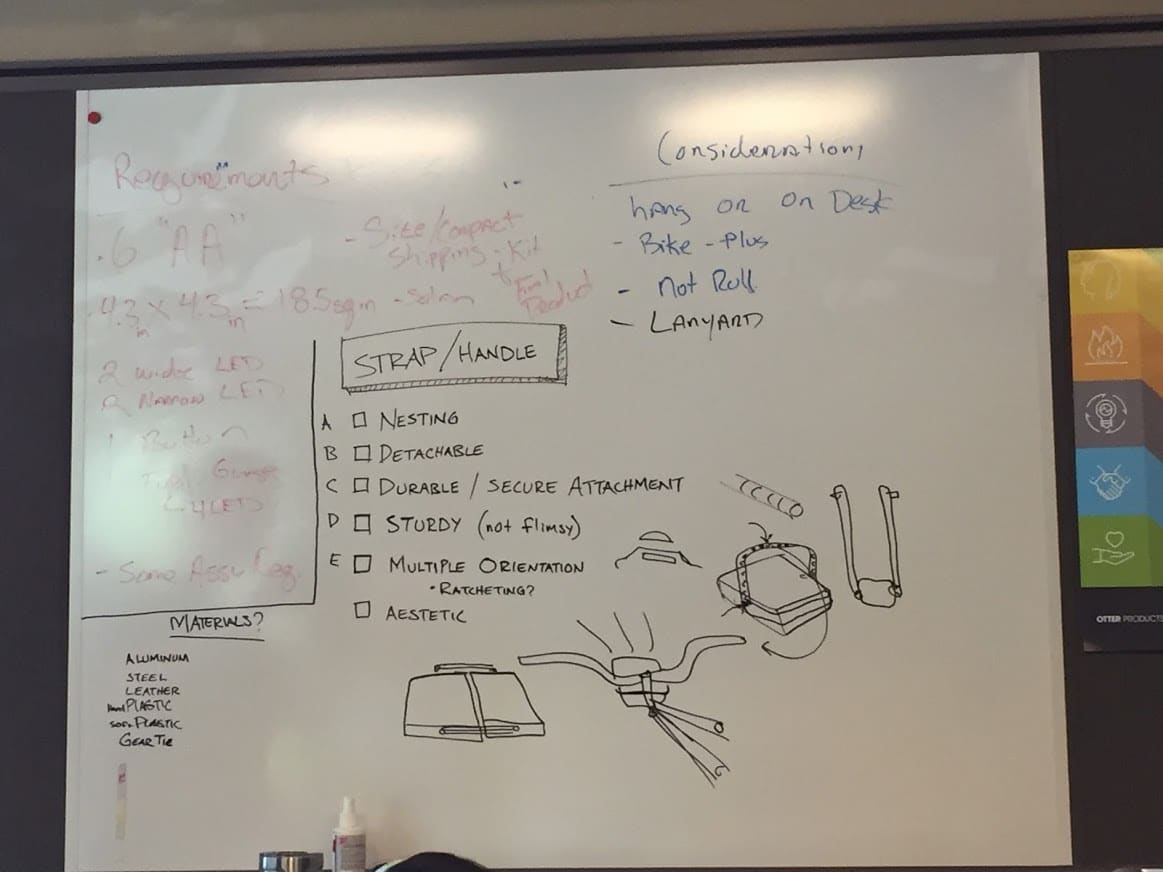 Requirements
.6 "AA"
- Size/Compact
Shipping - Kit
+ Final
Product
4.3 in x 4.3 in = 18.5 sq in - Solar
2 wide LED
2 Narrow LED
1 Button
Fuel Gauge
↳ 4 LEDs
- Some Assy Req.
Considerations
hang or on Desk
- Bike - Plus
- Not Roll
- LANYARD
STRAP/HANDLE
A □ NESTING
B □ DETACHABLE
C □ DURABLE / SECURE ATTACHMENT
D □ STURDY (not flimsy)
E □ MULTIPLE ORIENTATION
• RATCHETING?
□ AESTETIC
MATERIALS?
ALUMINUM
STEEL
LEATHER
Hard PLASTIC
SOFT PLASTIC
GEAR TIE
OTTER PRODUCTS